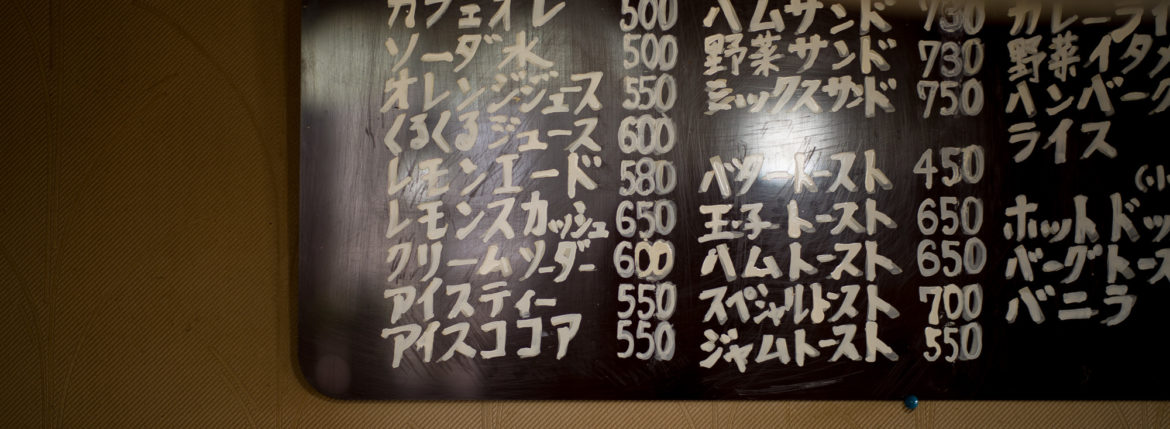 カフェオレ 500
ソーダ水 500
オレンジジュース 550
くるくるジュース 600
レモンエード 580
レモンスカッシュ 650
クリームソーダー 600
アイスティー 550
アイスココア 550
ハムサンド 730
野菜サンド 730
ミックスサンド 750
バタートースト 450
玉子トースト 650
ハムトースト 650
スペシャルトースト 700
ジャムトースト 550
カレーライ
野菜イタメ
ハンバーグ
ライス
(小
ホットドッ
バーグトース
バニラ